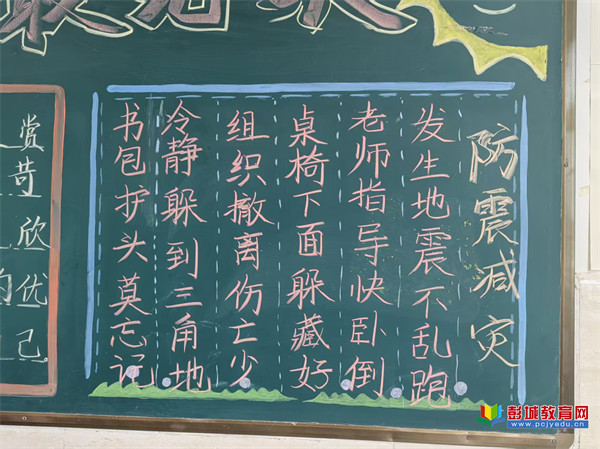 防震减灾
发生地震不乱跑
老师指导快卧倒
桌椅下面躲藏好
组织撤离伤亡少
冷静躲到三角地
书包护头莫忘记
赏
苛
欣
优
己
彭城教育网
www.pcjyedu.cn